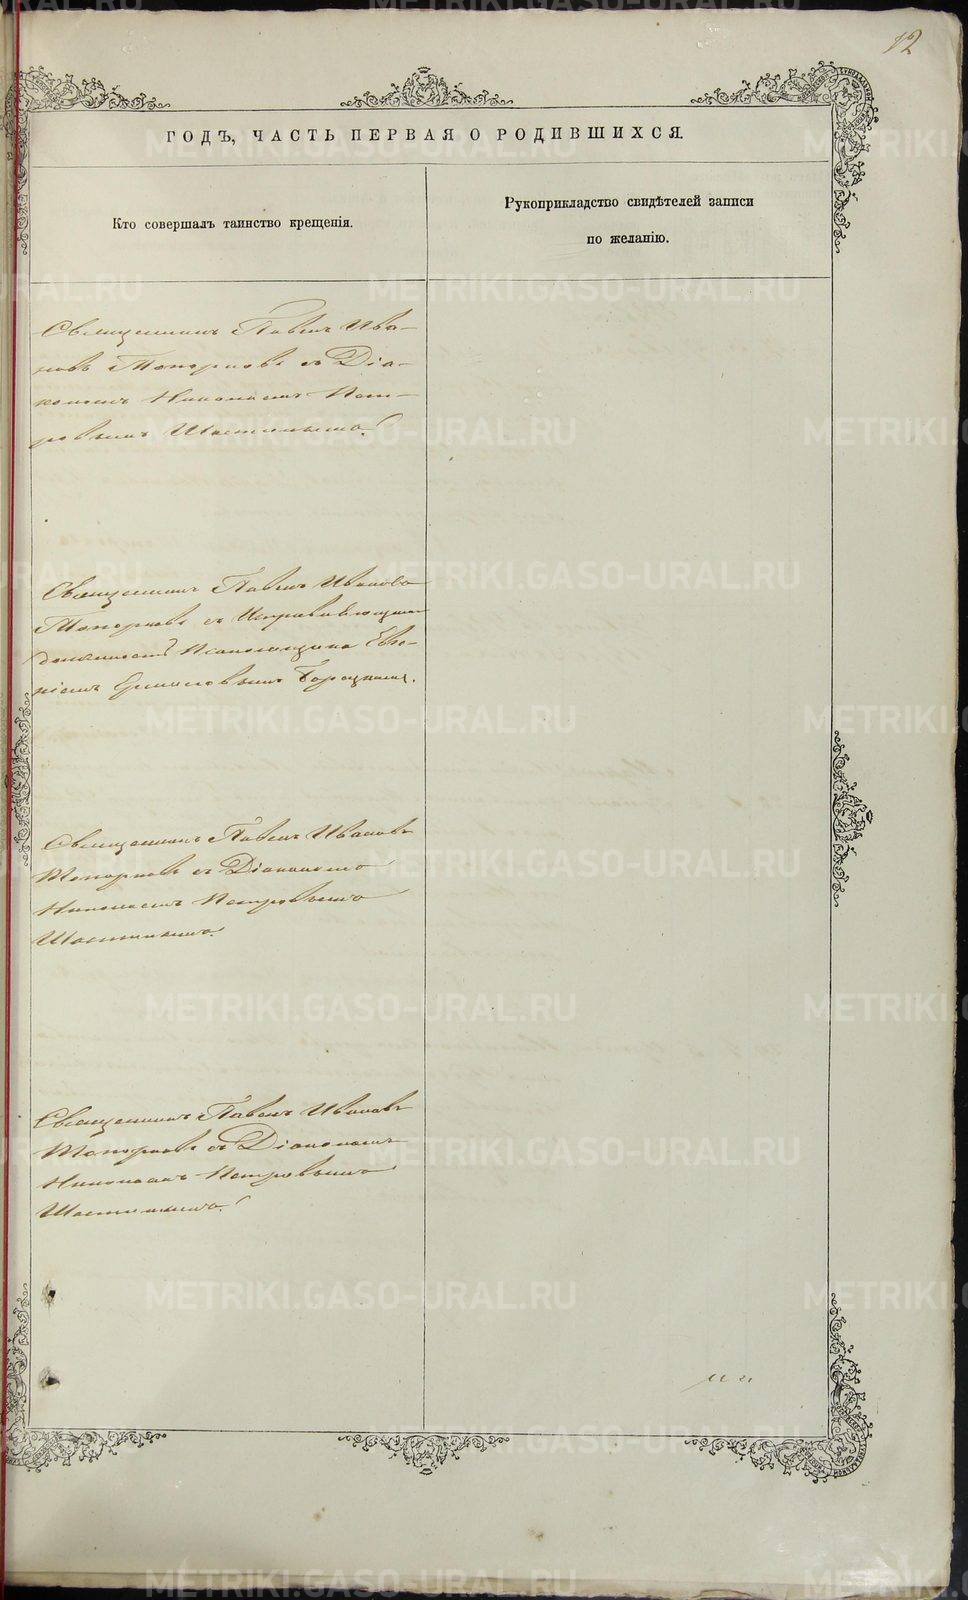 12
ГОДЪ, ЧАСТЬ ПЕРВАЯ О РОДИВШИХСЯ.
Кто совершалъ таинство крещенія.
Рукоприкладство свидѣтелей записи
по желанію.
Священникъ Павелъ Ива-
новъ Топорковъ съ Діа-
кономъ Николаемъ Пет-
ровымъ
Священникъ Павелъ Иванова
Топорковъ съ Исправляющимъ
должность Псаломщика Евге-
ніемъ
Священникъ Павелъ Ивановъ
Топорковъ съ Діакономъ
Николаемъ Петровымъ
Священникъ Павелъ Ивановъ
Топорковъ съ Діакономъ
Николаемъ Петровымъ
METRIKI.GASO-URAL.RU